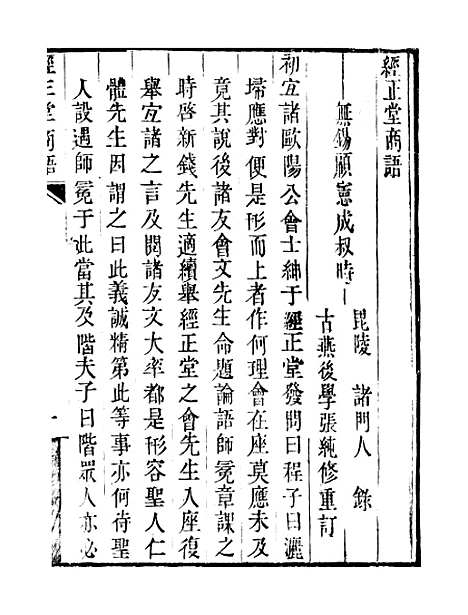 經正堂商語
無錫顧憲成叔時
毘陵　諸門人　錄
古燕後學張純修重訂
初宜諸歐陽公會士紳于經正堂發問曰程子曰灑
埽應對便是形而上者作何理會在座莫應未及
竟其說後諸友會文先生命題論語師冕章課之
時啓新錢先生適續舉經正堂之會先生入座復
舉宜諸之言及閱諸友文大率都是形容聖人仁
體先生因謂之曰此義誠精第此等事亦何待聖
人設遇師冕于此當其及階夫子曰階眾人亦必
經正堂商語
一